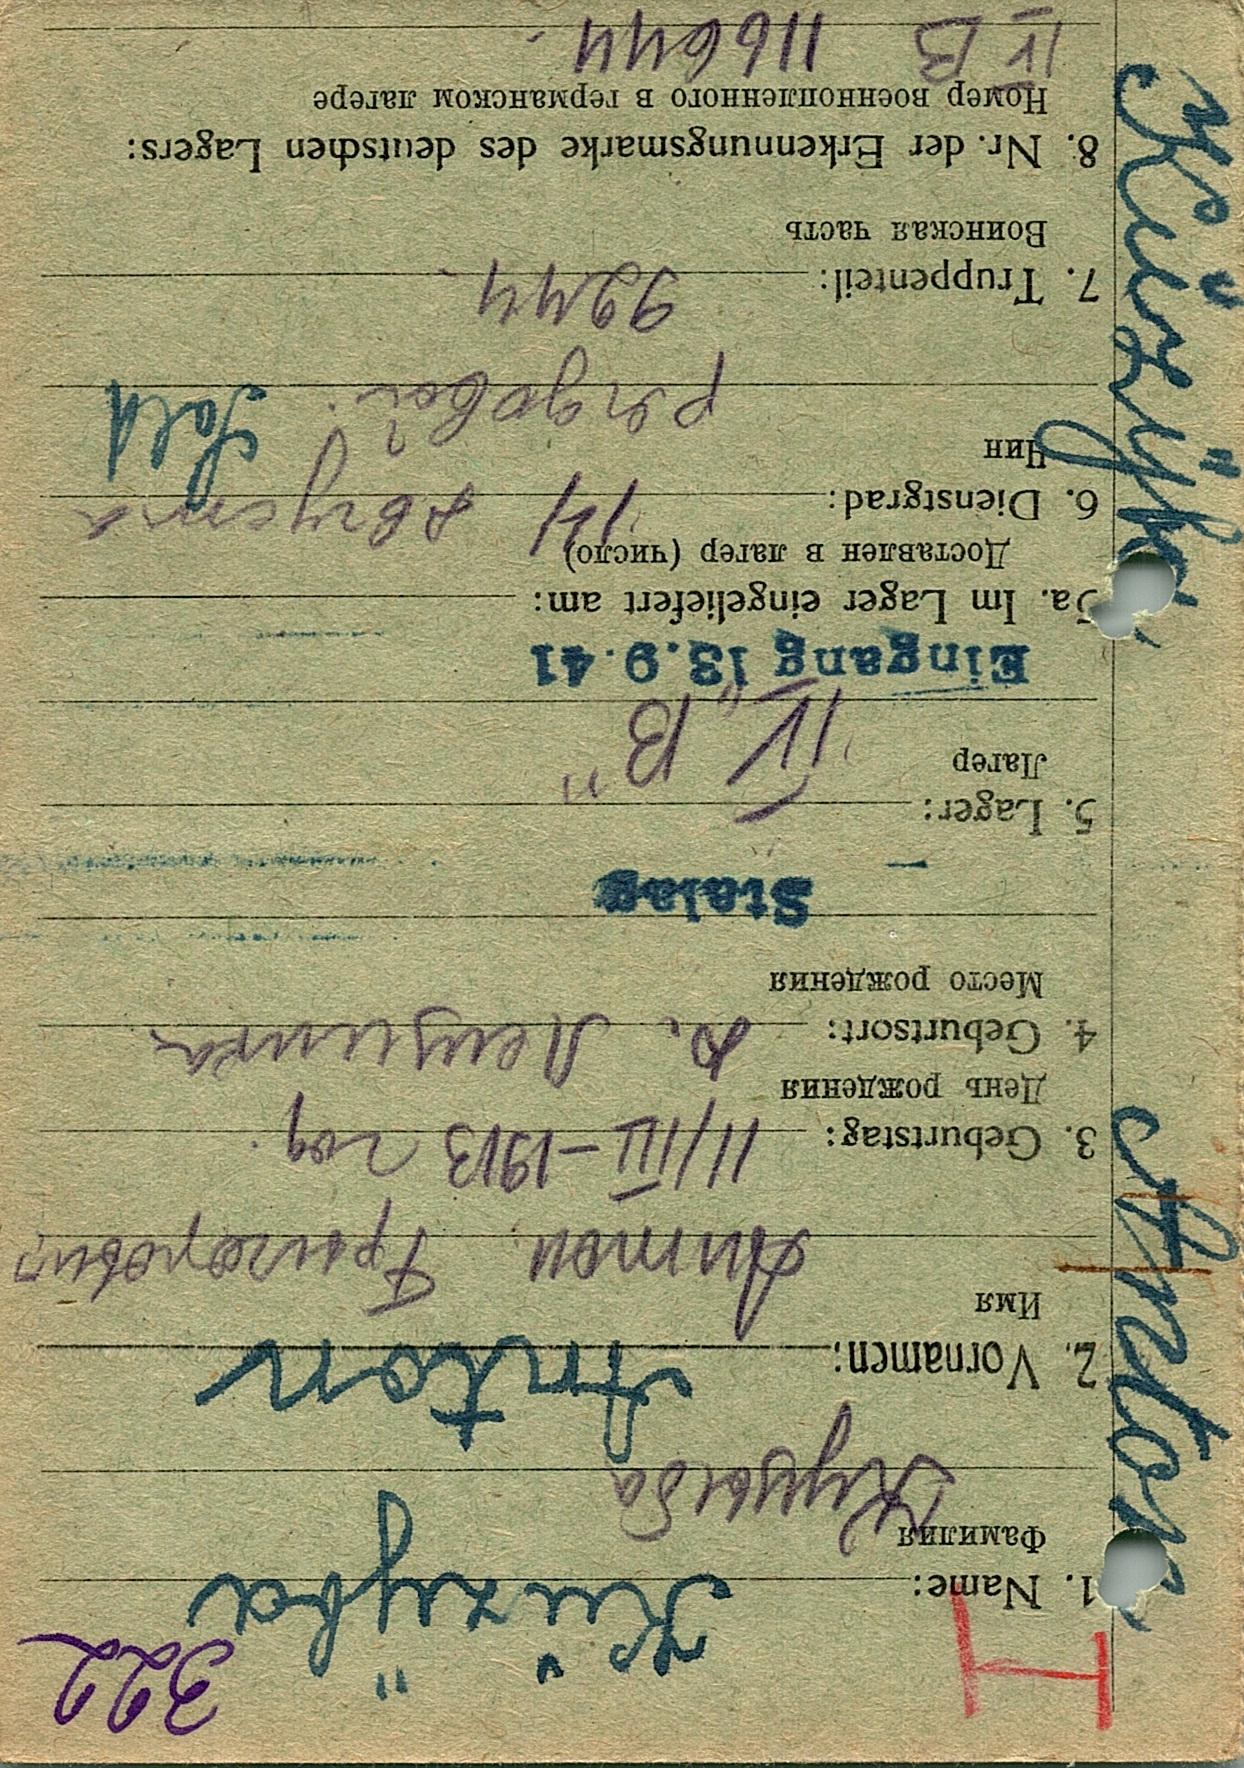 322
H
1. Name: Kŭzÿba
Фамилия
Кузыба
2. Vornamen: Anton
Имя
Антон Григорович
3. Geburtstag: 11/III-1913 год.
День рождения
4. Geburtsort: д.
Место рождения
Stalag
5. Lager: IV „B"
Лагер
Eingang 13.9.41
5a. Im Lager eingeliefert am:
Доставлен в лагер (число) 14 августа
6. Dienstgrad: Sold
Чин
рядовой.
7. Truppenteil: 9244
Воинская часть
8. Nr. der Erkennungsmarke des deutschen Lagers:
Номер военнопленного в германском лагере
IV B 11644.
Anton